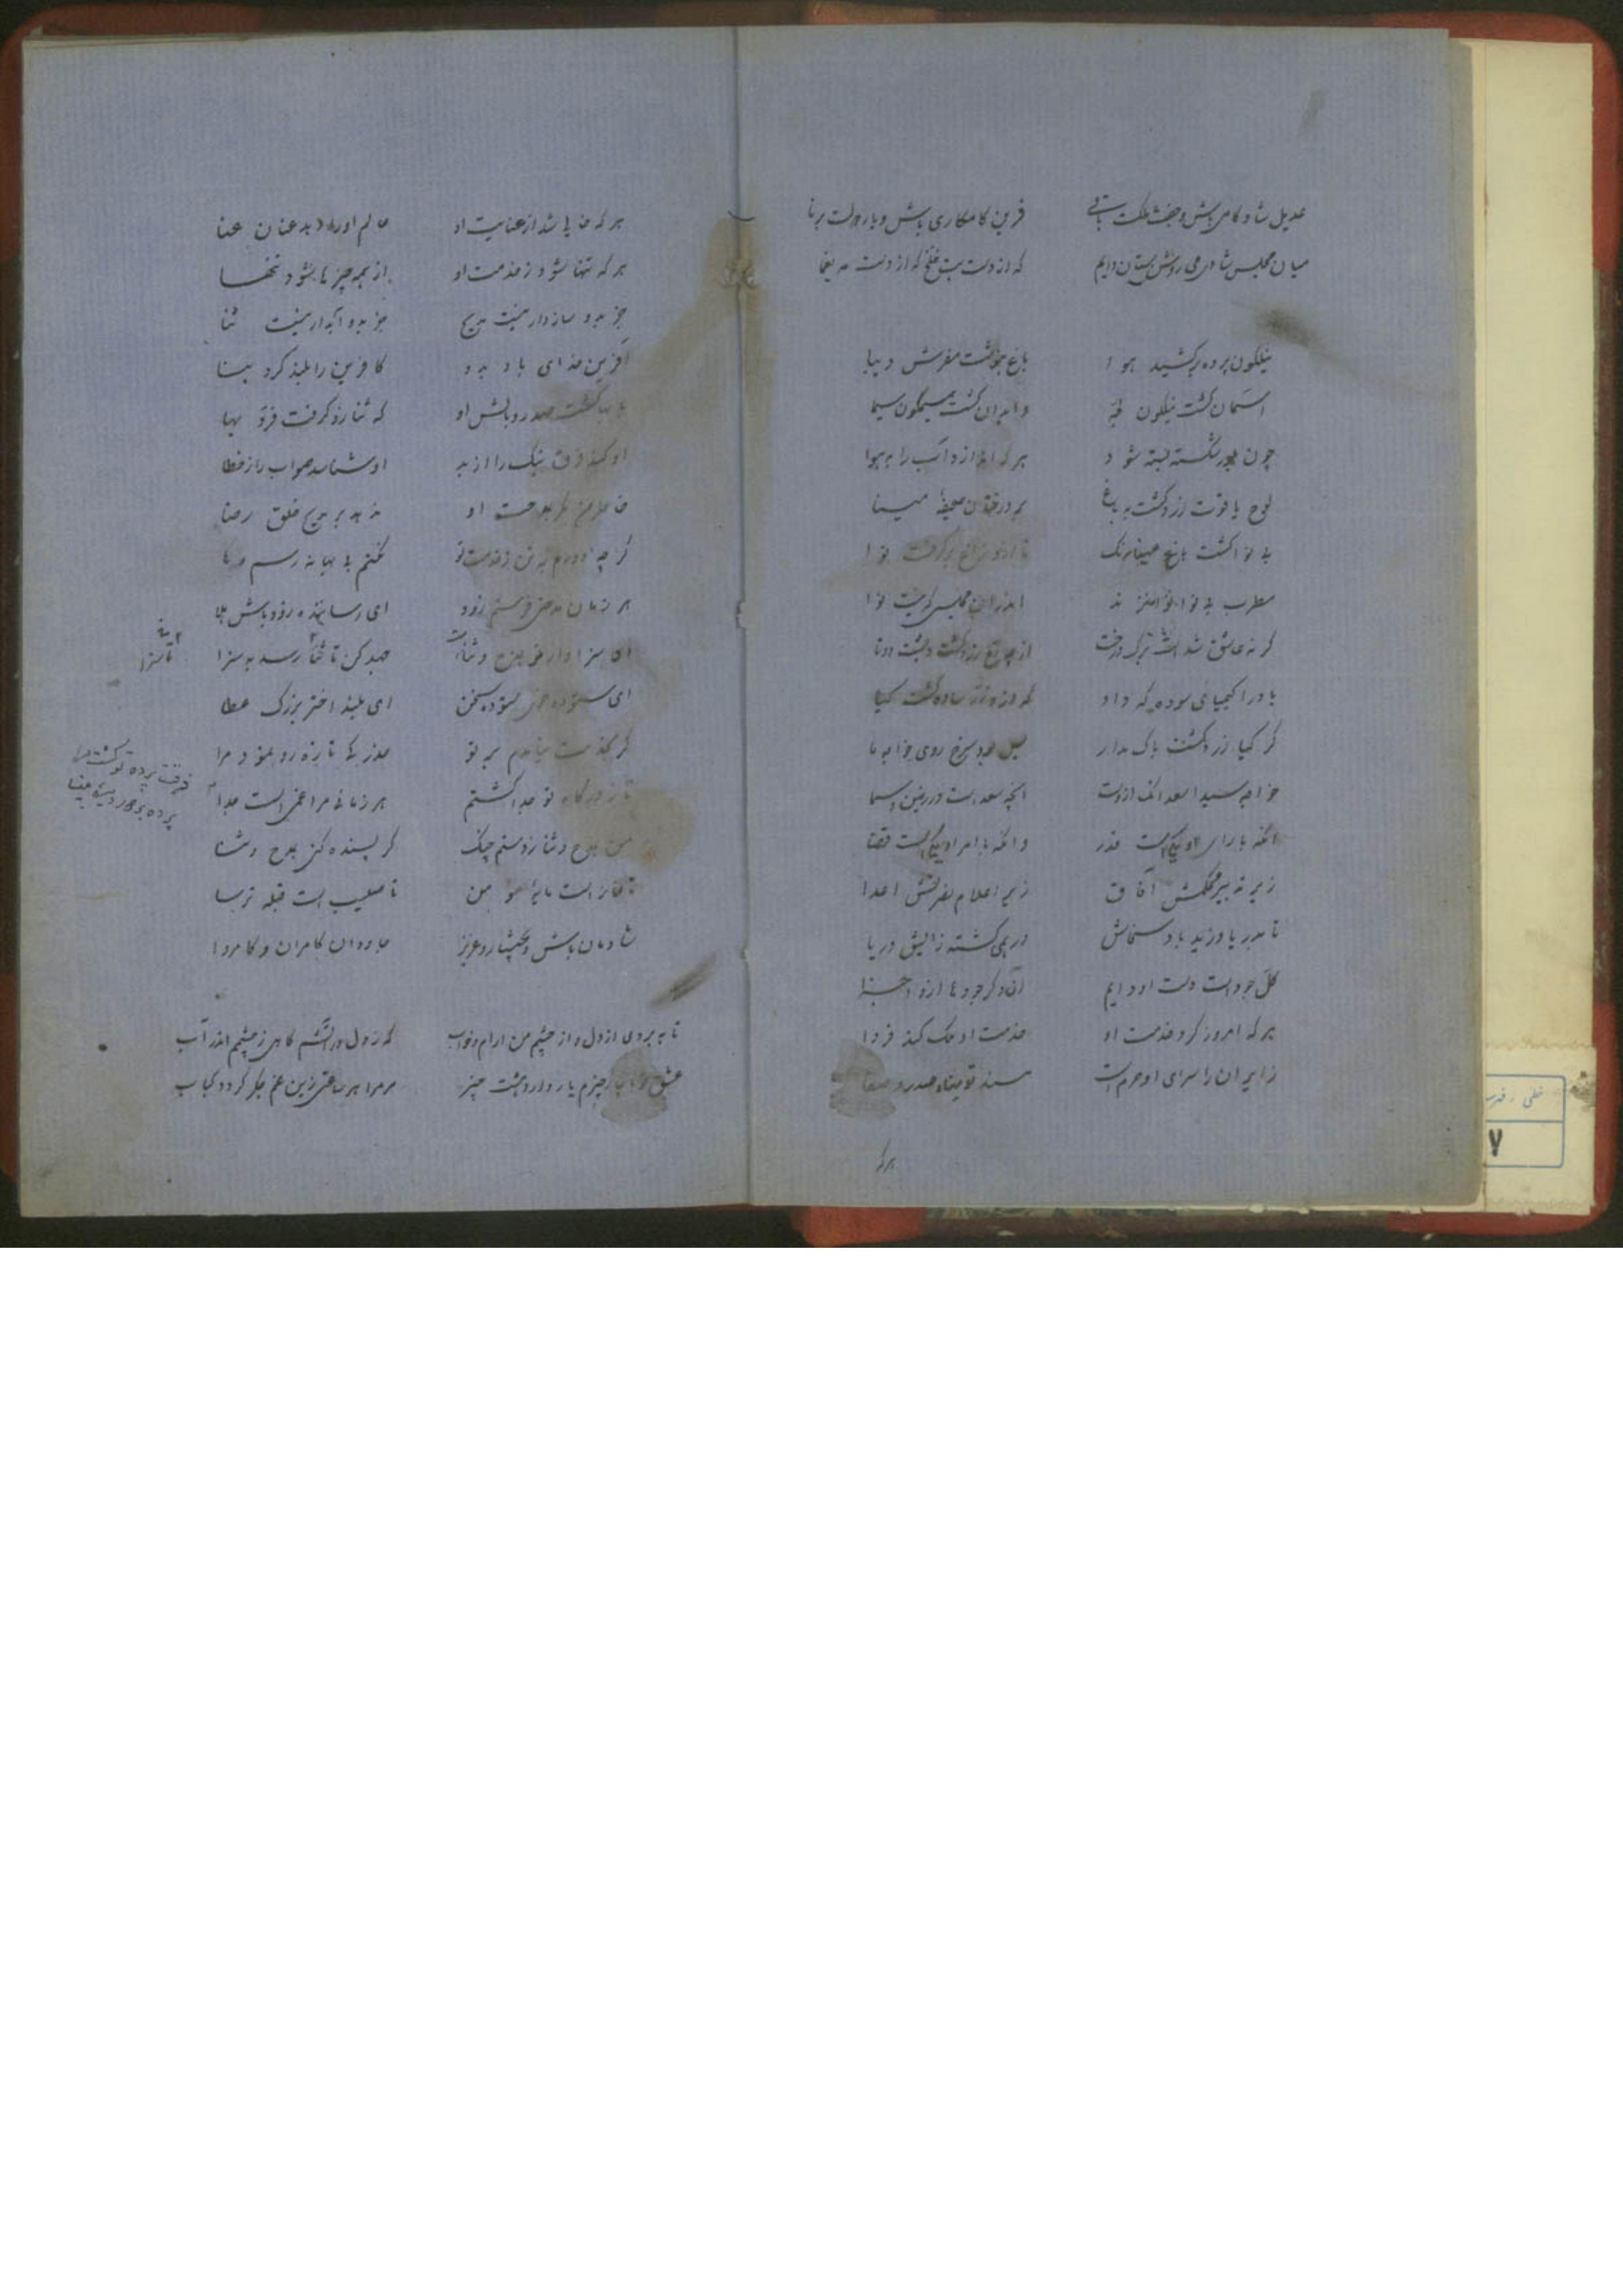 عدیل شادکامی باش و جفت ملکت باقی قرین کامکاری باش و یار دولت برنا
میان مجلس شادی می روشن ستان دایم که از دست بت خلخ که از دست مه یغما
نیلگون پرده برکشید هوا باغ بنوشت مفرش دیبا
آسمان گشت نیلگون وابدان گشت سیمگون سیما
چون بلور شکسته بسته شود هر که اندازد آب را بهوا
لوح یاقوت زرد گشت بباغ بر درختان صحیفه مینا
بی نوا گشت باغ مینا رنگ تا درو زاغ برگرفت نوا
مطرب بی نوا نوا نزند اندران مجلسی که نیست نوا
گر نه عاشق شد است برگ درخت از چه رخ زرد گشت و پشت دوتا
باد را کیمیای سوده که داد که ازو زر ساده گشت گیا
گر گیا زرد گشت باک مدار بس بود سرخ روی خواجه ما
خواجه سید اسعد آنکه ازوست آنچه سعد است در زمین و سما
آنکه با رای او یکیست قدر وانکه با امر او یکیست قضا
زیر تدبیر محکمش آفاق زیر اعلام نصرتش اعدا
تا بدریا وزید باد سخاش در بهی گشته زایش دریا
کل جود است دست او دایم وان دگر جودها ازو اجزا
هر که امروز کرد خدمت او خدمت او ملک کند فردا
زایران را سرای او حرم است مسند او مناه صدر و صفا
هر که
هر که خالی شد از عنایت او عالم او را دهد عنان عنا
هر که تنها شود ز خدمت او از همه چیزها شود تنها
جز بدو سازوار نیست مدیح جز بدو آبدار نیست ثنا
آفرین خدای باد بدو کافرین را بلند کرد بنا
با بها گشت صدر و بالش او که ثنا زو گرفت فر و بها
او کند فرق نیک را از بد او شناسد صواب را ز خطا
خاطر من مگر بمدحت او ندهد بر مدیح خلق رضا
گر چه دورم به تن ز خدمت تو نکنم بی بهانه رسم
هر زمان مدحتی فرستم زود ای رساننده زود باش هلا
ای سزاوار مدح و ثنا جهد کن تا ثنا رسد به سزا
تا سزا
ای ستوده ستوده سخن ای بلند اختر بزرگ عطا
گر بخدمت نیامدم بر تو عذر یکی تازه رو نمود مرا
تا ز درگاه تو جدا گشتم هر زمانی مرا غمی است جدا
فرقت پرده تو گشت مرا
پرده بر
من بمدح و ثنا زدستم چنگ گر پسنده کنی بمدح و ثنا
تا صلیب است قبله ترسا
شادمان باش و بختیار و عزیز جاودان کامران و کامروا
تا ببردی از دل و از چشم من آرام و خواب گه ز دل در آتشم گاهی ز چشم اندر آب
عشق تو با چار چیزم یار دارد هشت چیز مر مرا هر ساعتی زین غم جگر گردد کباب
خطی
۷